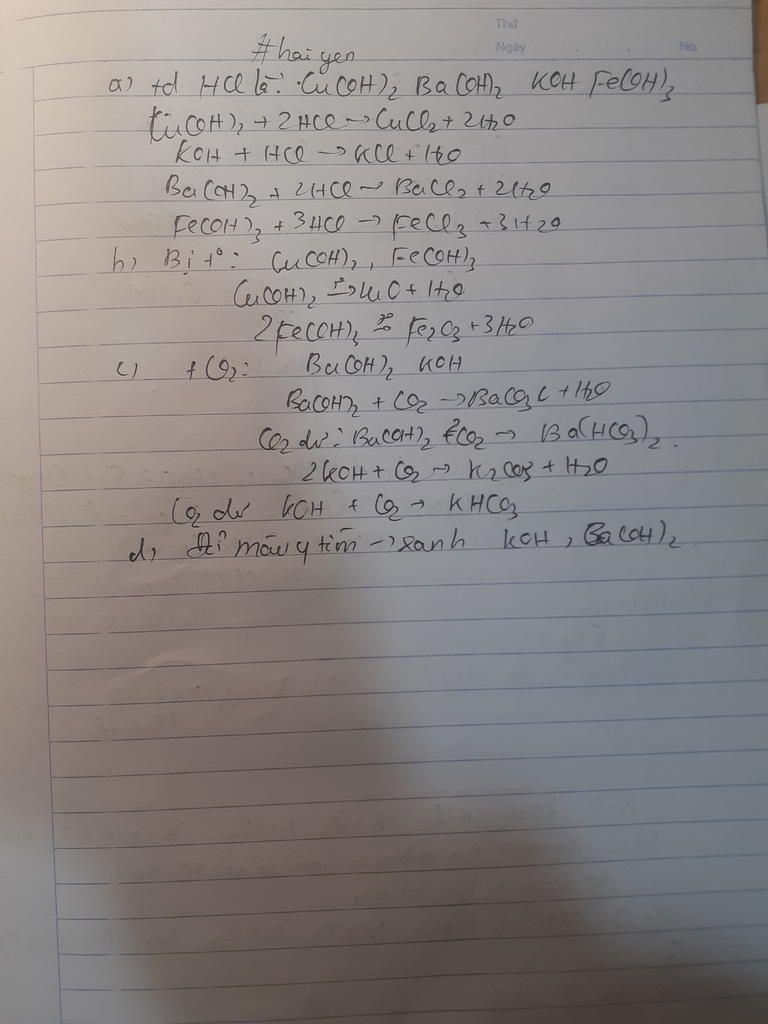 Thứ
Ngày No.
#hai yen
a) td HCl là: Cu(OH)2 Ba(OH)2 KOH Fe(OH)3
Cu(OH)2 + 2HCl → CuCl2 + 2H2O
KOH + HCl → KCl + H2O
Ba(OH)2 + 2HCl → BaCl2 + 2H2O
Fe(OH)3 + 3HCl → FeCl3 + 3H2O
b) Bị t°: Cu(OH)2, Fe(OH)3
Cu(OH)2 t°→ CuO + H2O
2Fe(OH)3 t°→ Fe2O3 + 3H2O
c) + CO2: Ba(OH)2 KOH
Ba(OH)2 + CO2 → BaCO3↓ + H2O
CO2 dư: Ba(OH)2 + 2CO2 → Ba(HCO3)2.
2KOH + CO2 → K2CO3 + H2O
CO2 dư KOH + CO2 → KHCO3
d, màu q tím → xanh KOH, Ba(OH)2